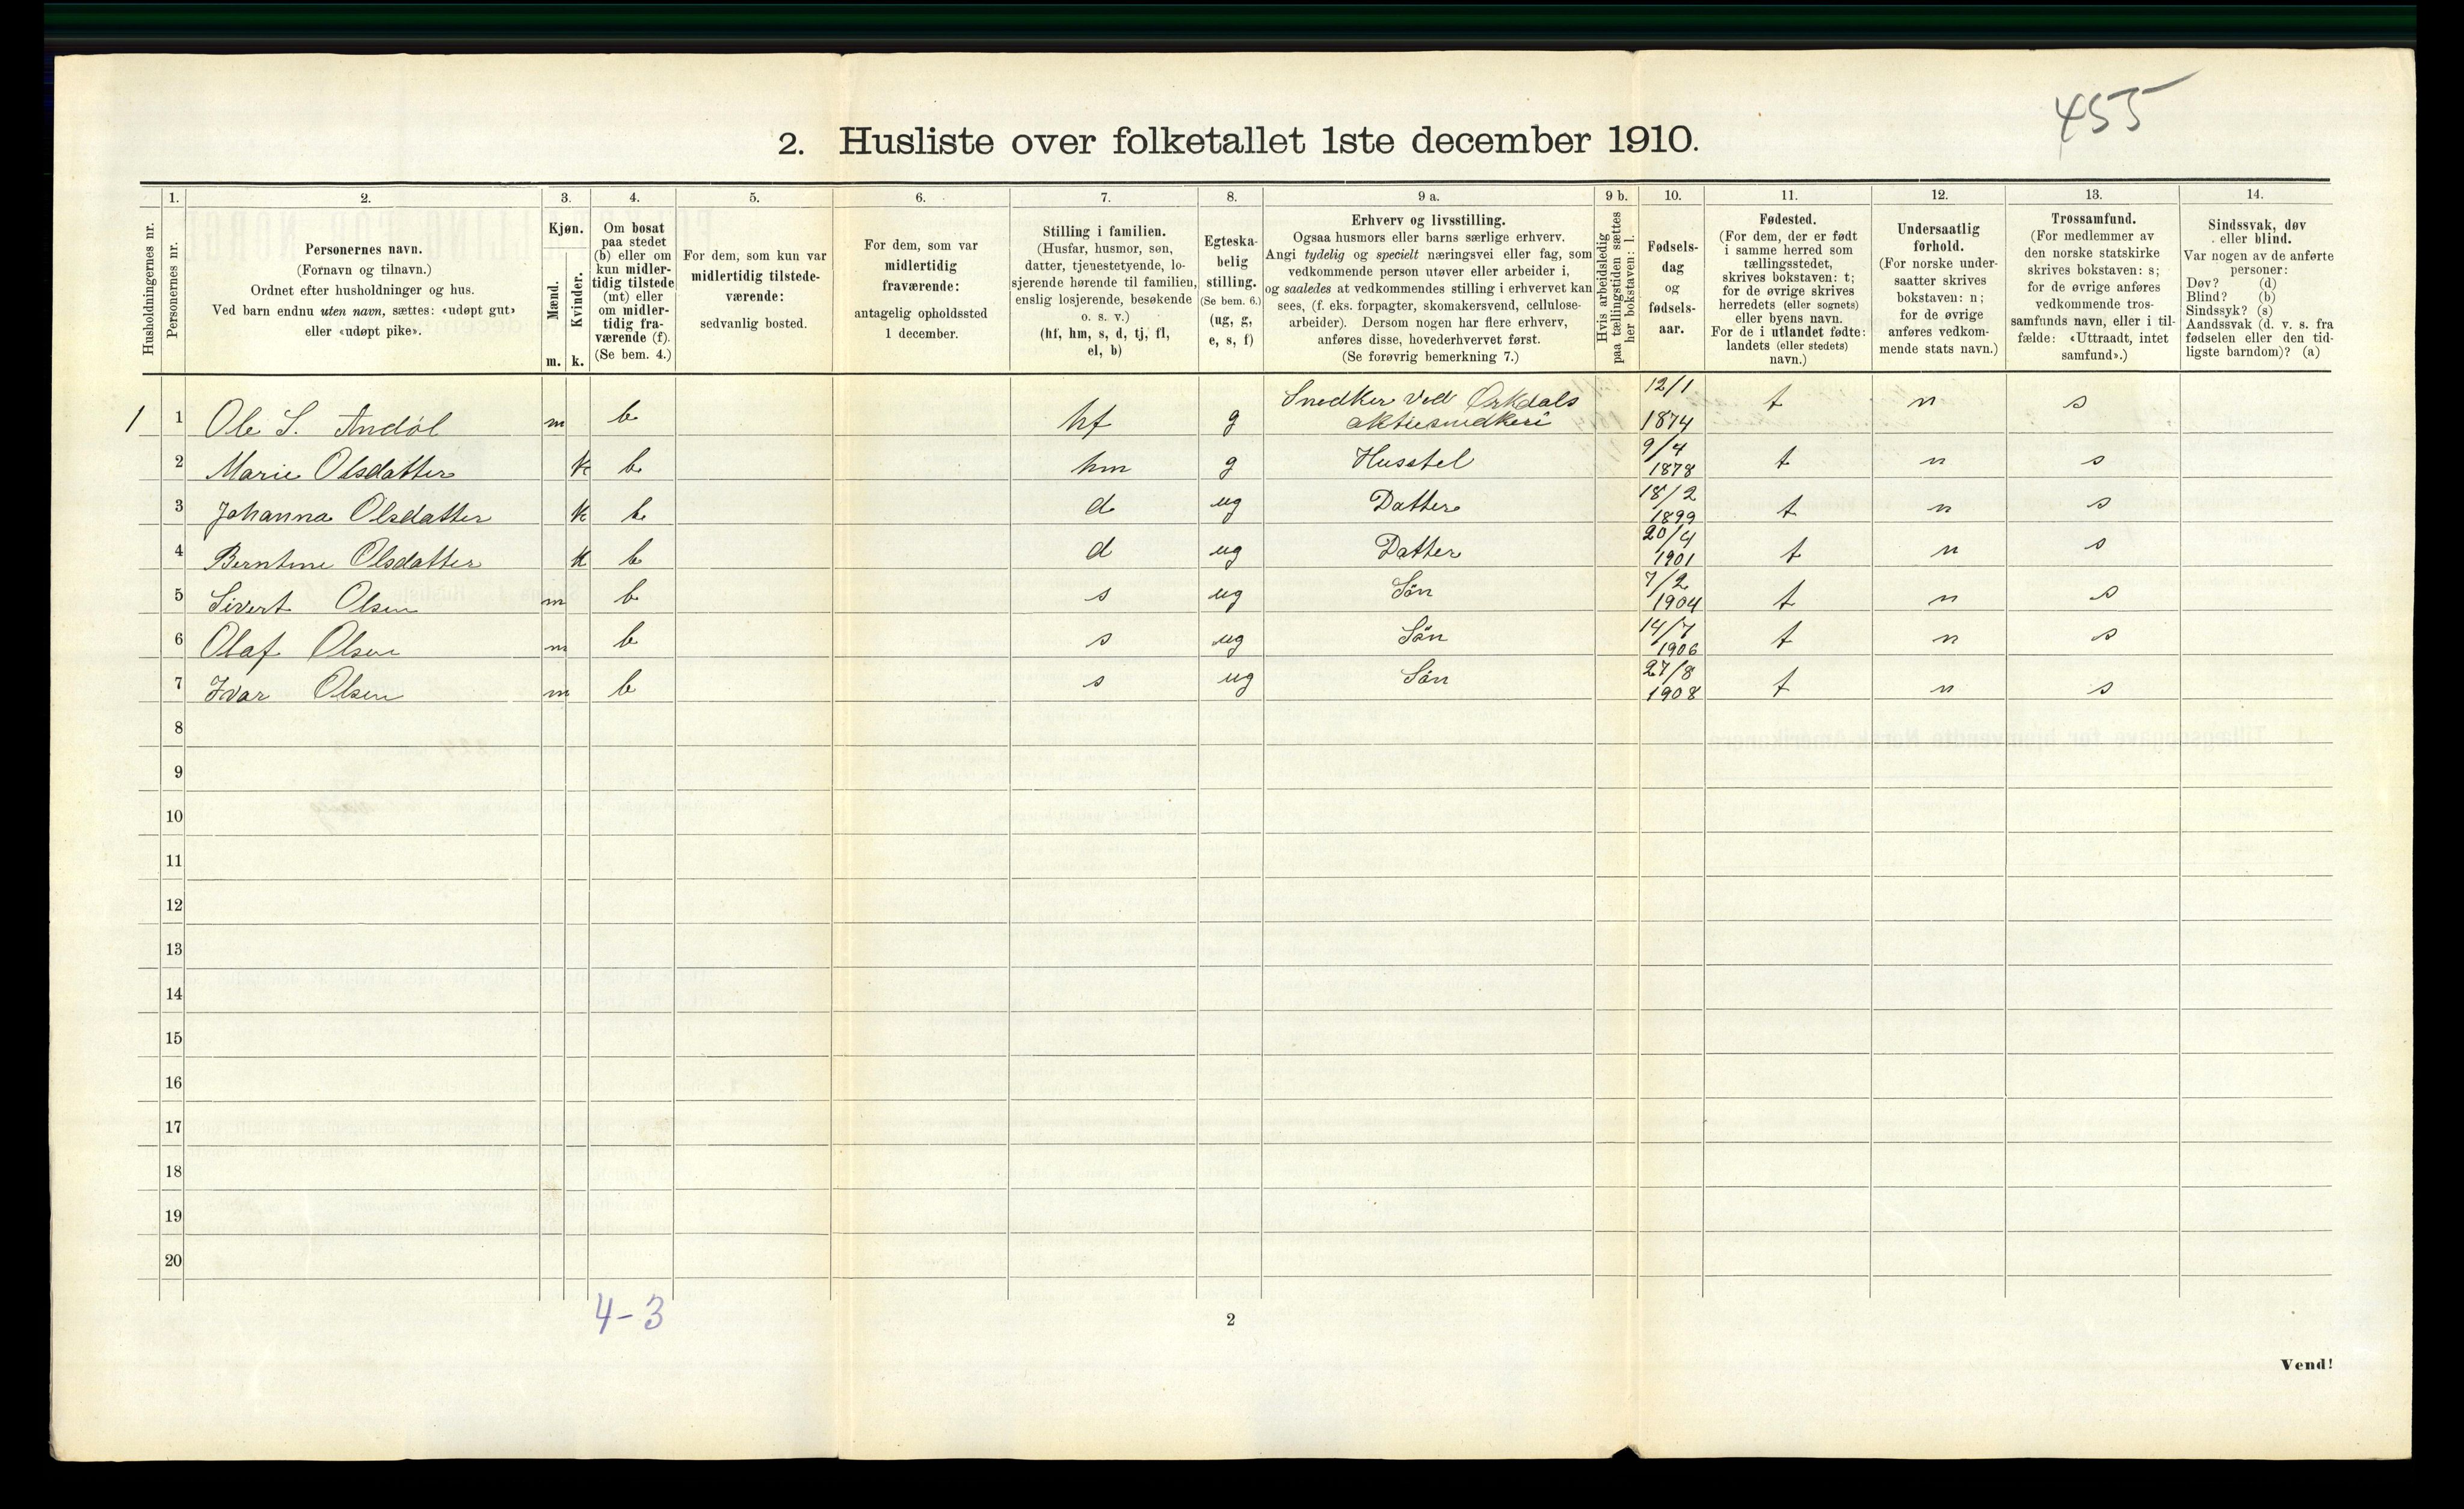 455
2. Husliste over folketallet 1ste december 1910.
Husholdningernes nr.
1.
Personernes nr.
2.
Personernes navn.
(Fornavn og tilnavn.)
Ordnet efter husholdninger og hus.
Ved barn endnu uten navn, sættes: «udøpt gut»
eller «udøpt pike».
3.
Kjøn.
Mænd.
m.
Kvinder.
k.
4.
Om bosat
paa stedet
(b) eller om
kun midler-
tidig tilstede
(mt) eller
om midler-
tidig fra-
værende (f).
(Se bem. 4.)
5.
For dem, som kun var
midlertidig tilstede-
værende:
sedvanlig bosted.
6.
For dem, som var
midlertidig
fraværende:
antagelig opholdssted
1 december.
7.
Stilling i familien.
(Husfar, husmor, søn,
datter, tjenestetyende, lo-
sjerende hørende til familien,
enslig losjerende, besøkende
o. s. v.)
(hf, hm, s, d, tj, fl,
el, b)
8.
Egteska-
belig
stilling.
(Se bem. 6.)
(ug, g,
e, s, f)
9 a.
Erhverv og livsstilling.
Ogsaa husmors eller barns særlige erhverv.
Angi tydelig og specielt næringsvei eller fag, som
vedkommende person utøver eller arbeider i,
og saaledes at vedkommendes stilling i erhvervet kan
sees, (f. eks. forpagter, skomakersvend, cellulose-
arbeider). Dersom nogen har flere erhverv,
anføres disse, hovederhvervet først.
(Se forøvrig bemerkning 7.)
9 b.
Hvis arbeidsledig
paa tællingstiden sættes
her bokstaven: l.
10.
Fødsels-
dag
og
fødsels-
aar.
11.
Fødested.
(For dem, der er født
i samme herred som
tællingsstedet,
skrives bokstaven: t;
for de øvrige skrives
herredets (eller sognets)
eller byens navn.
For de i utlandet fødte:
landets (eller stedets)
navn.)
12.
Undersaatlig
forhold.
(For norske under-
saatter skrives
bokstaven: n;
for de øvrige
anføres vedkom-
mende stats navn.)
13.
Trossamfund.
(For medlemmer av
den norske statskirke
skrives bokstaven: s;
for de øvrige anføres
vedkommende tros-
samfunds navn, eller i til-
fælde: «Uttraadt, intet
samfund».)
14.
Sindssvak, døv
eller blind.
Var nogen av de anførte
personer:
Døv? (d)
Blind? (b)
Sindssyk? (s)
Aandssvak (d. v. s. fra
fødselen eller den tid-
ligste barndom)? (a)
1 1 Ole S. Andøl m b hf g Snedker ved Orkdals aktiesnedkeri 12/1 1874 t n s
2 Marie Olsdatter k b hm g Husstel 9/4 1878 t n s
3 Johanna Olsdatter k b d ug Datter 18/2 1899 t n s
4 Berntine Olsdatter k b d ug Datter 20/4 1901 t n s
5 Sivert Olsen m b s ug Sön 7/2 1904 t n s
6 Olaf Olsen m b s ug Sön 14/7 1906 t n s
7 Ivar Olsen m b s ug Sön 27/8 1908 t n s
8
9
10
11
12
13
14
15
16
17
18
19
20
4-3
2
Vend!